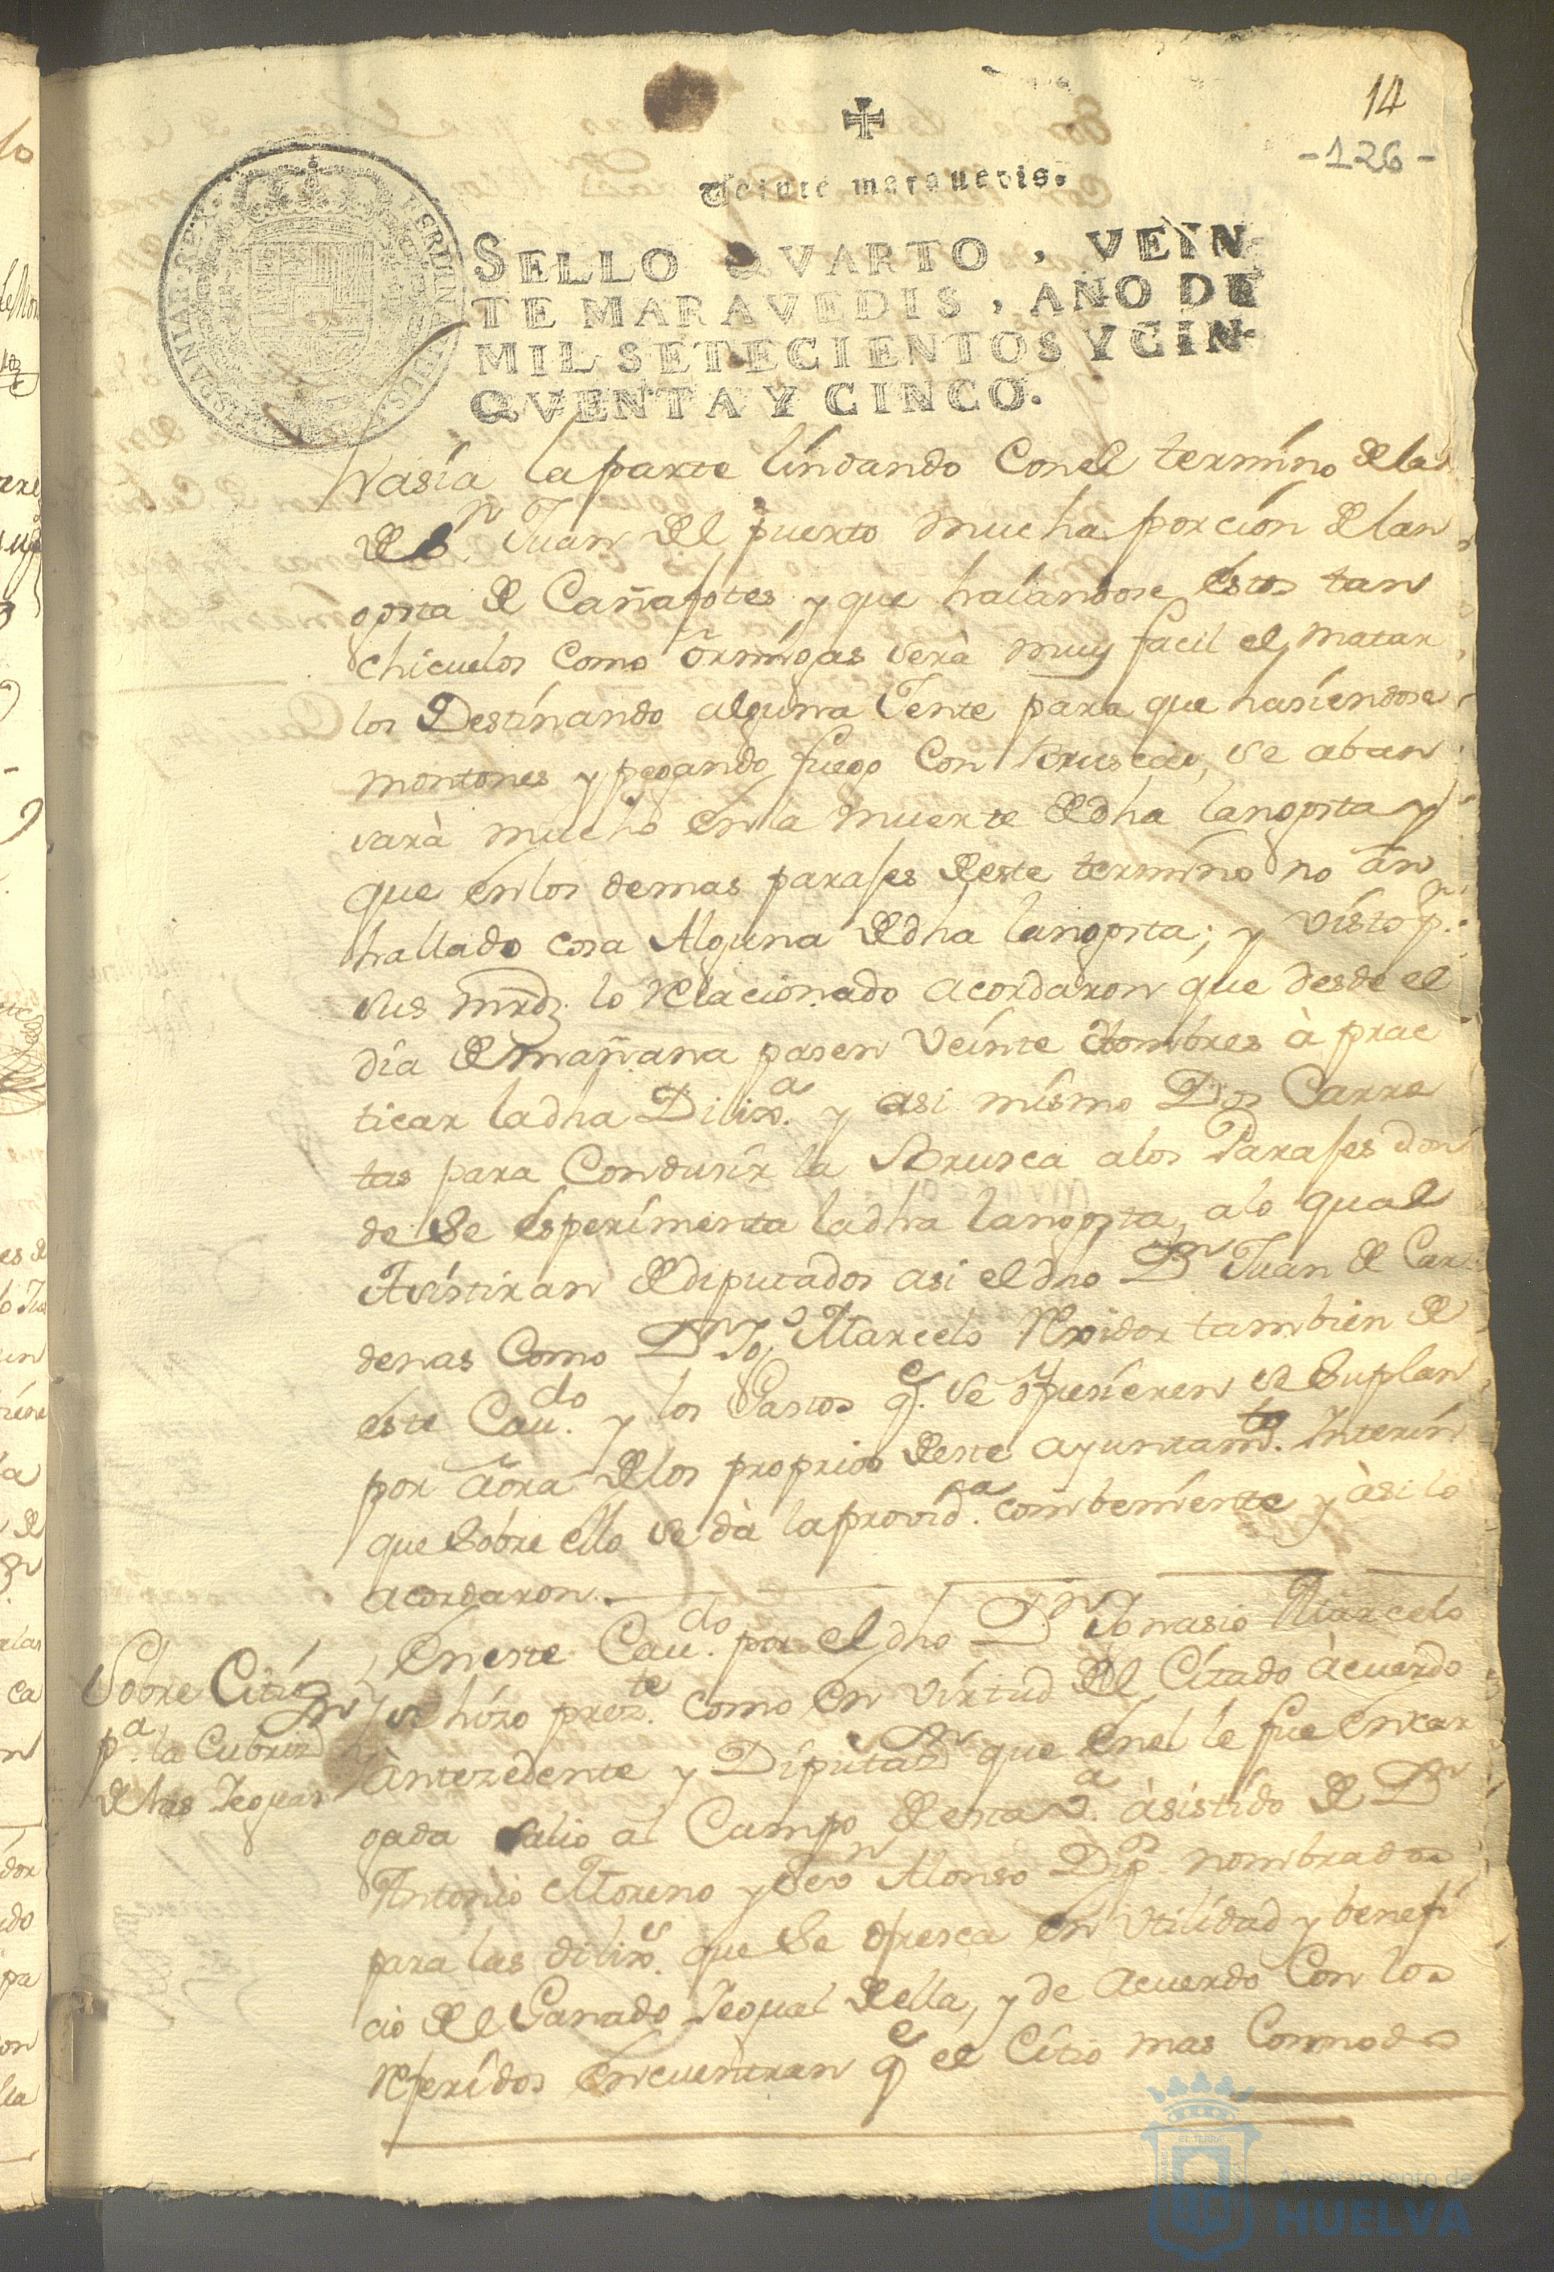 14
-126-
Veinte maravedis.
SELLO QVARTO, VEIN
TE MARAVEDIS, AÑO DE
MIL SETECIENTOS Y CIN
QVENTA Y CINCO.
HISPANIAR. REX.
hasía la parte lindando con el termino de la
de Sn. Juan del puerto mucha porcion de lan
gosta de Cañafotes y que halandose éstos tan
chicuelos como ormigas será muy facil el matar
los Destinando alguna Jente para que hasiendose
montones y pegando fuego con brusca, se aban
sará mucho en la muerte de dha langosta y
que en los demas parajes de este termino no an
hallado cosa Alguna de dha langosta; y visto pr.
sus mrds. lo Relacionado acordaron que desde el
dia de mañana pasen veinte Hombres à prac
ticar la dha Dilixa. y asi mismo Dos Carre
tas para Condusir la Brusca a los Parajes don
de Se esperimenta la dha langosta, a lo qual
Asistiran de diputados asi el dho Dn. Juan de Car
denas Como Dn. Marcelo Rexidor tambien de
este Cavdo. y los Gastos qe. se ofresieren se Suplan
por aóra de los proprios de este ayuntamto. Interin
que Sobre ello se dá la providª. combeniente y àsi lo
acordaron.
En este Cavdo. por el dho Dn. Ignasio Marcelo
se hizo preste. como en virtud del Citado àcuerdo
àntezedente y Diputazn que en el le fue encar
gada salio al Campo de esta va. àsistido de Dn
Antonio Moreno y Alonso Dip. nombrados
para las dilixes. que Se ofresca en vtilidad y benefi
cio de el Ganado Yegual de ella, y de acuerdo Con los
Referidos encuentran qe el Citio mas Commodo
Sobre Citio
pa. la Cubrizn
de las Yeguas
Ayuntamiento de
HUELVA